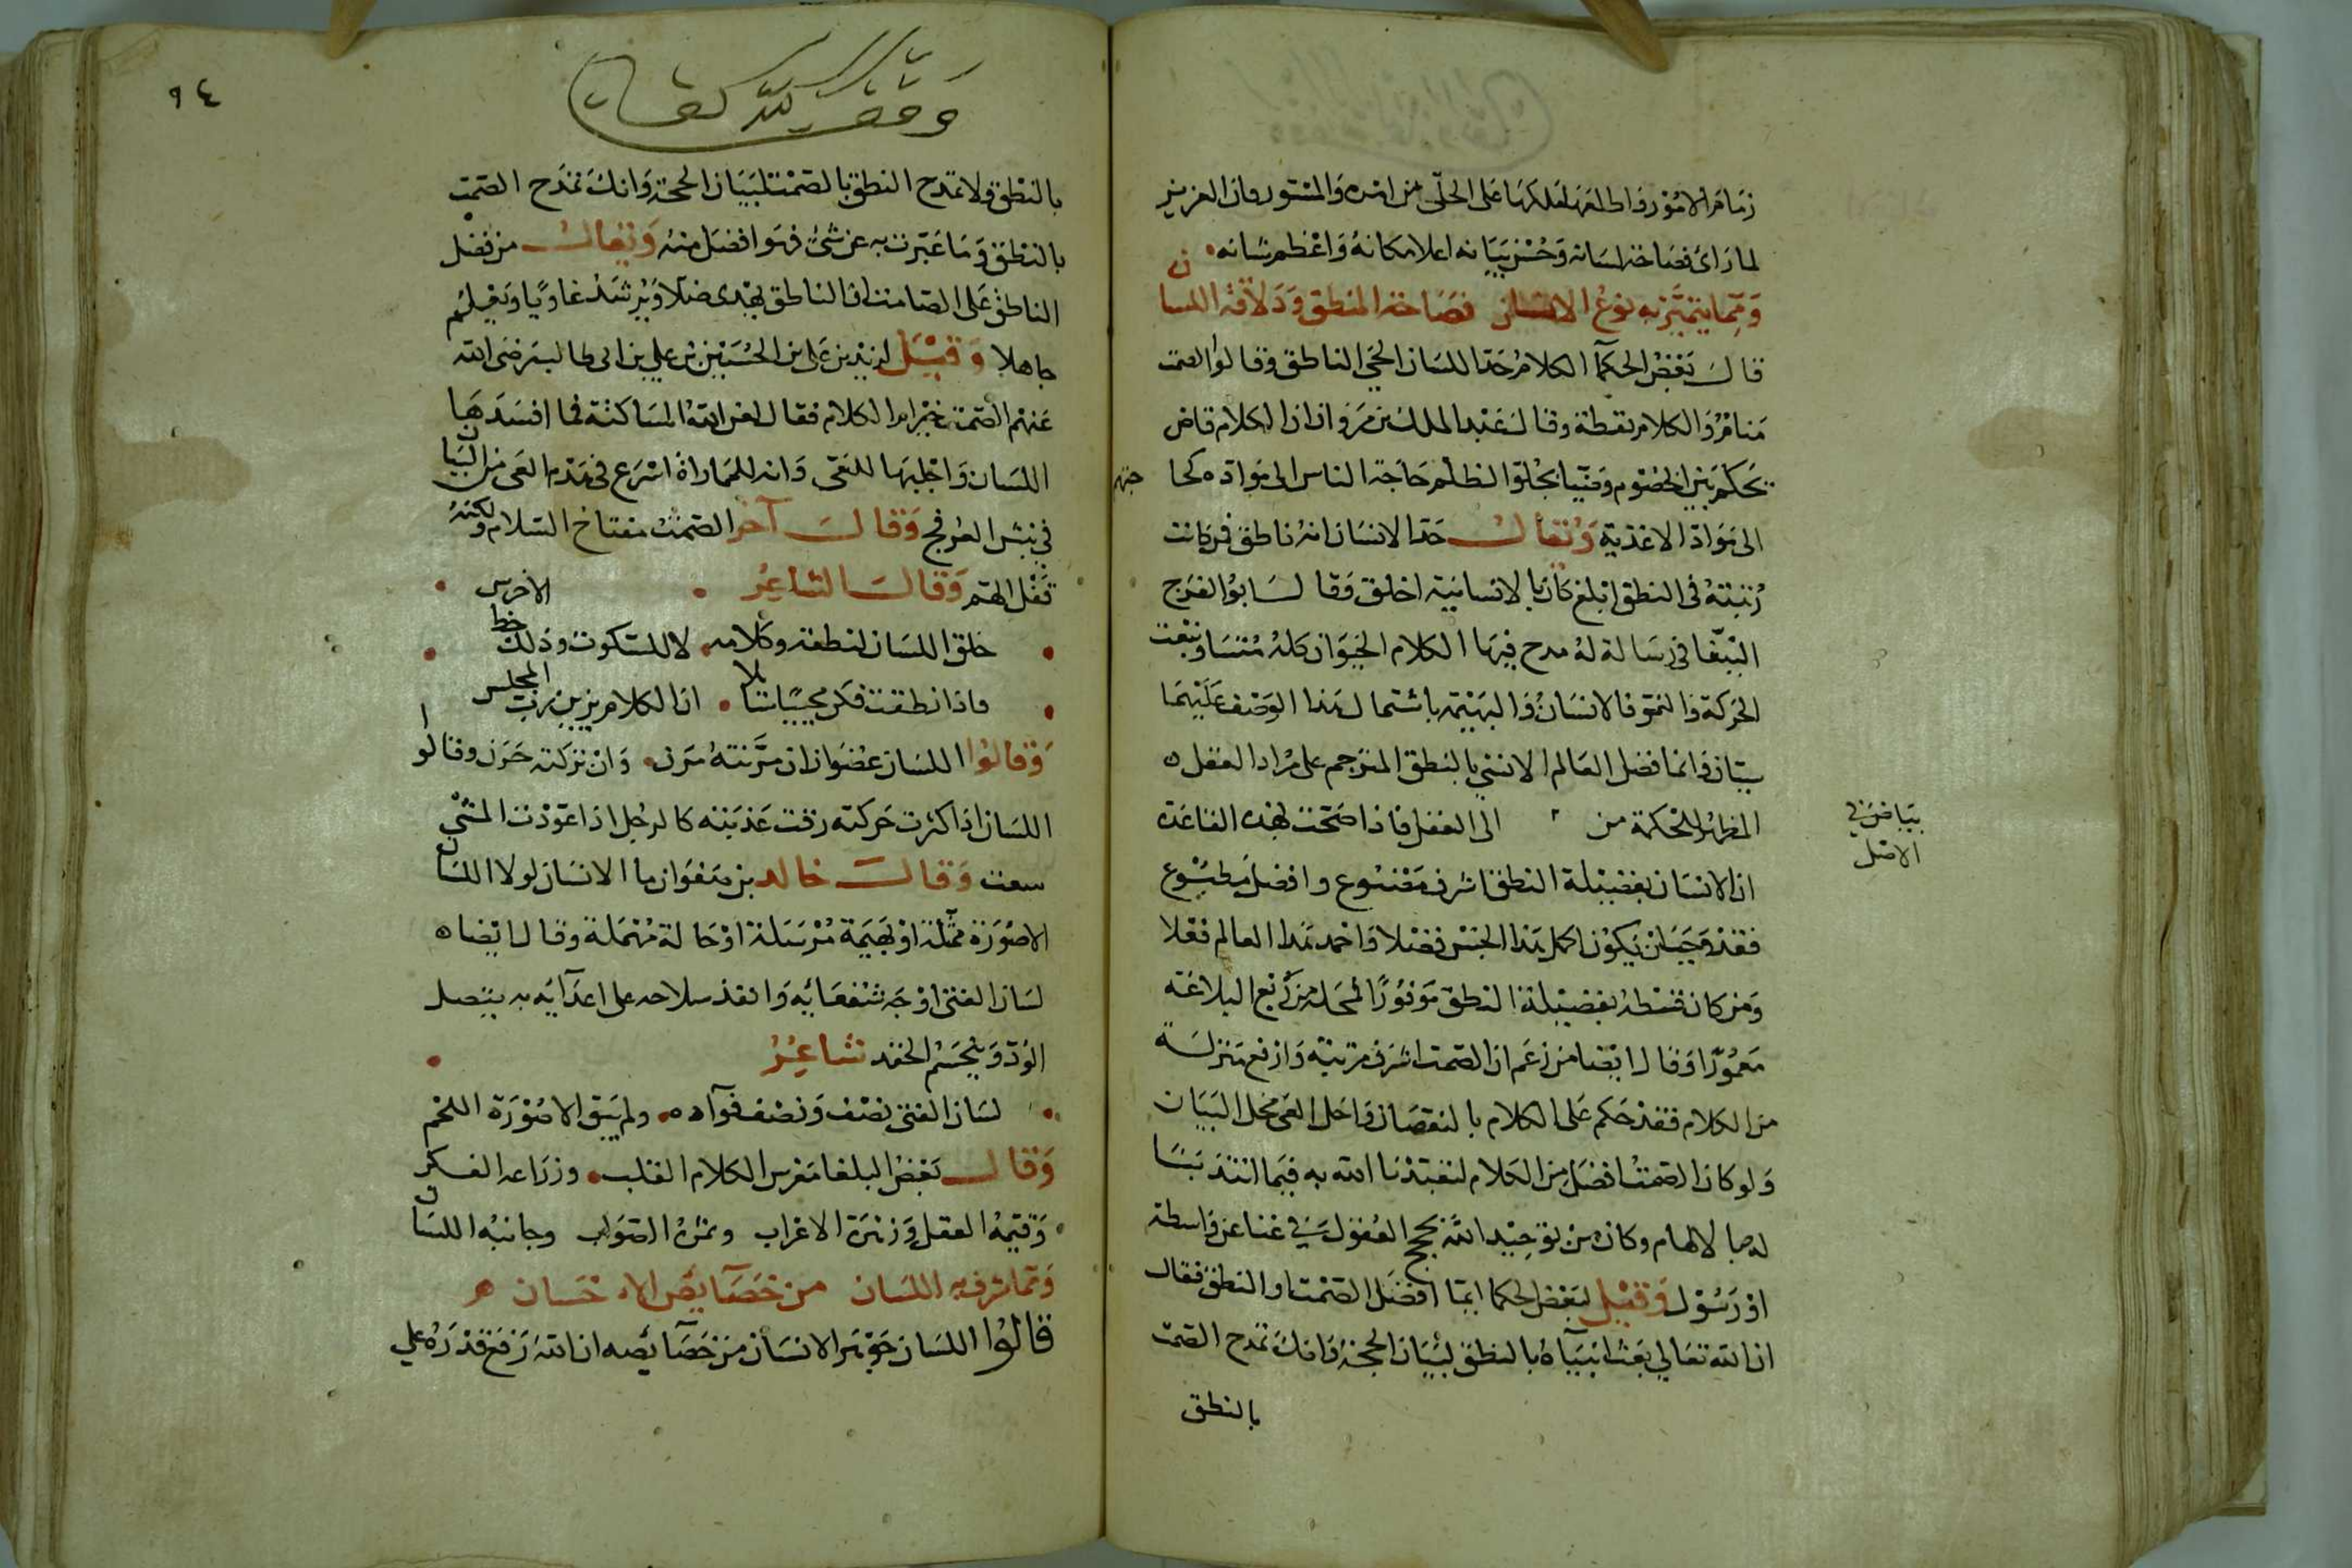 زمام الامور واطلعه لملكها على الجلى من امره والمستور وان العزيز
لما راى فصاحة لسانه وحسن بيانه اعلا مكانه واعظم شانه
ومما يتميز به نوع الانسان فصاحة المنطق وذلاقة اللسان
قال بعض الحكما الكلام حد اللسان الحى الناطق وقالوا الصمت
منام والكلام يقظة وقال عبد الملك بن مروان ان الكلام قاض
يحكم بين الخصوم وضيا يجلوا الظلم حاجة الناس الى مواده كحاجتهم
الى مواد الاغذية ويقال حد الانسان انه ناطق فمن كانت
رتبته فى النطق ابلغ كان بالانسانية اخلق وقال ابو الفرج
الببغا فى رسالة له مدح فيها الكلام الحيوان كله متساو ببعت
الحركة والنمو فالانسان والبهيمة باشتمال هذا الوصف عليهما
سيان وانما فضل العالم الانسي بالنطق المترجم على مراد العقل
للحكمة من الى العقل فاذا صحت لهذه القاعدة
بياض فى
الاصل
ان الانسان بفضيلة النطق اشرف مصنوع وافضل مطبوع
فقد وجب ان يكون اكمل هذا الجنس فضلا واحمد هذا العالم فعلا
ومن كان قسطه بفضيلة النطق موفورا من ربع البلاغة
معمورا وقال ايضا من زعم ان الصمت اشرف مرتبة وارفع منزلة
من الكلام فقد حكم على الكلام بالنقصان واحل العى محل البيان
ولو كان الصمت افضل من الكلام لتعبدنا الله به فيما انتدبنا
له بالالهام وكان من توحيد الله بحجج العقول فى غنا عن واسطة
او رسول وقيل لبعض الحكما ايما افضل الصمت او النطق فقال
ان الله تعالي بعث انبياه بالنطق لبيان الحجة وانك تمدح الصمت
بالنطق
٩٤
وقف لله تعالى
بالنطق ولا تمدح النطق بالصمت لبيان الحجة وانك تمدح الصمت
بالنطق وما عبرت به عن شئ فهو افضل منه ويقال من فضل
الناطق على الصامت ان الناطق يهدى ضالا ويرشد غاويا ويعلم
جاهلا وقيل لزيد بن على بن الحسين بن علي بن ابى طالب رضى الله
عنهم الصمت خير ام الكلام فقال لعن الله المساكتة فما افسدها
اللسان واجلبها للعى والله للمماراة اسرع فى هدم العى من النار
فى يبس العرفج وقال آخر الصمت مفتاح السلام ولكنه
قفل الفهم وقال الشاعر
خلق اللسان لنطقه وكلامه لا للسكوت وذلك خط الاخرس
فاذا نطقت فكن مجيبا سائلا ان الكلام يزين رب المجلس
وقالوا اللسان عضوا ان مرنته مرن وان تركته حرن وقالوا
اللسان اذا كثرت حركته رقت عذبته كالرجل اذا عودت المشي
سعت وقال خالد بن صفوان ما الانسان لولا اللسان
الا صورة ممثلة او بهيمة مرسلة او حالة مهملة وقال ايضا
لسان الفتى اوجه شفعائه وانفذ سلاحه على اعدآيه به يتصل
الود وينحسم الحقد شاعر
لسان الفتى نصف ونصف فوآده ولم يبق الا صورة اللحم
وقال بعض البلغا مغرس الكلام القلب وزراعه الفكر
وقيمه العقل وزهرة الاعراب وثمره الصواب وجانيه اللسان
ومما شرف به اللسان من خصآيص الاحسان
قالوا اللسان جوهر الانسان من خصآيصه ان الله رفع قدره على